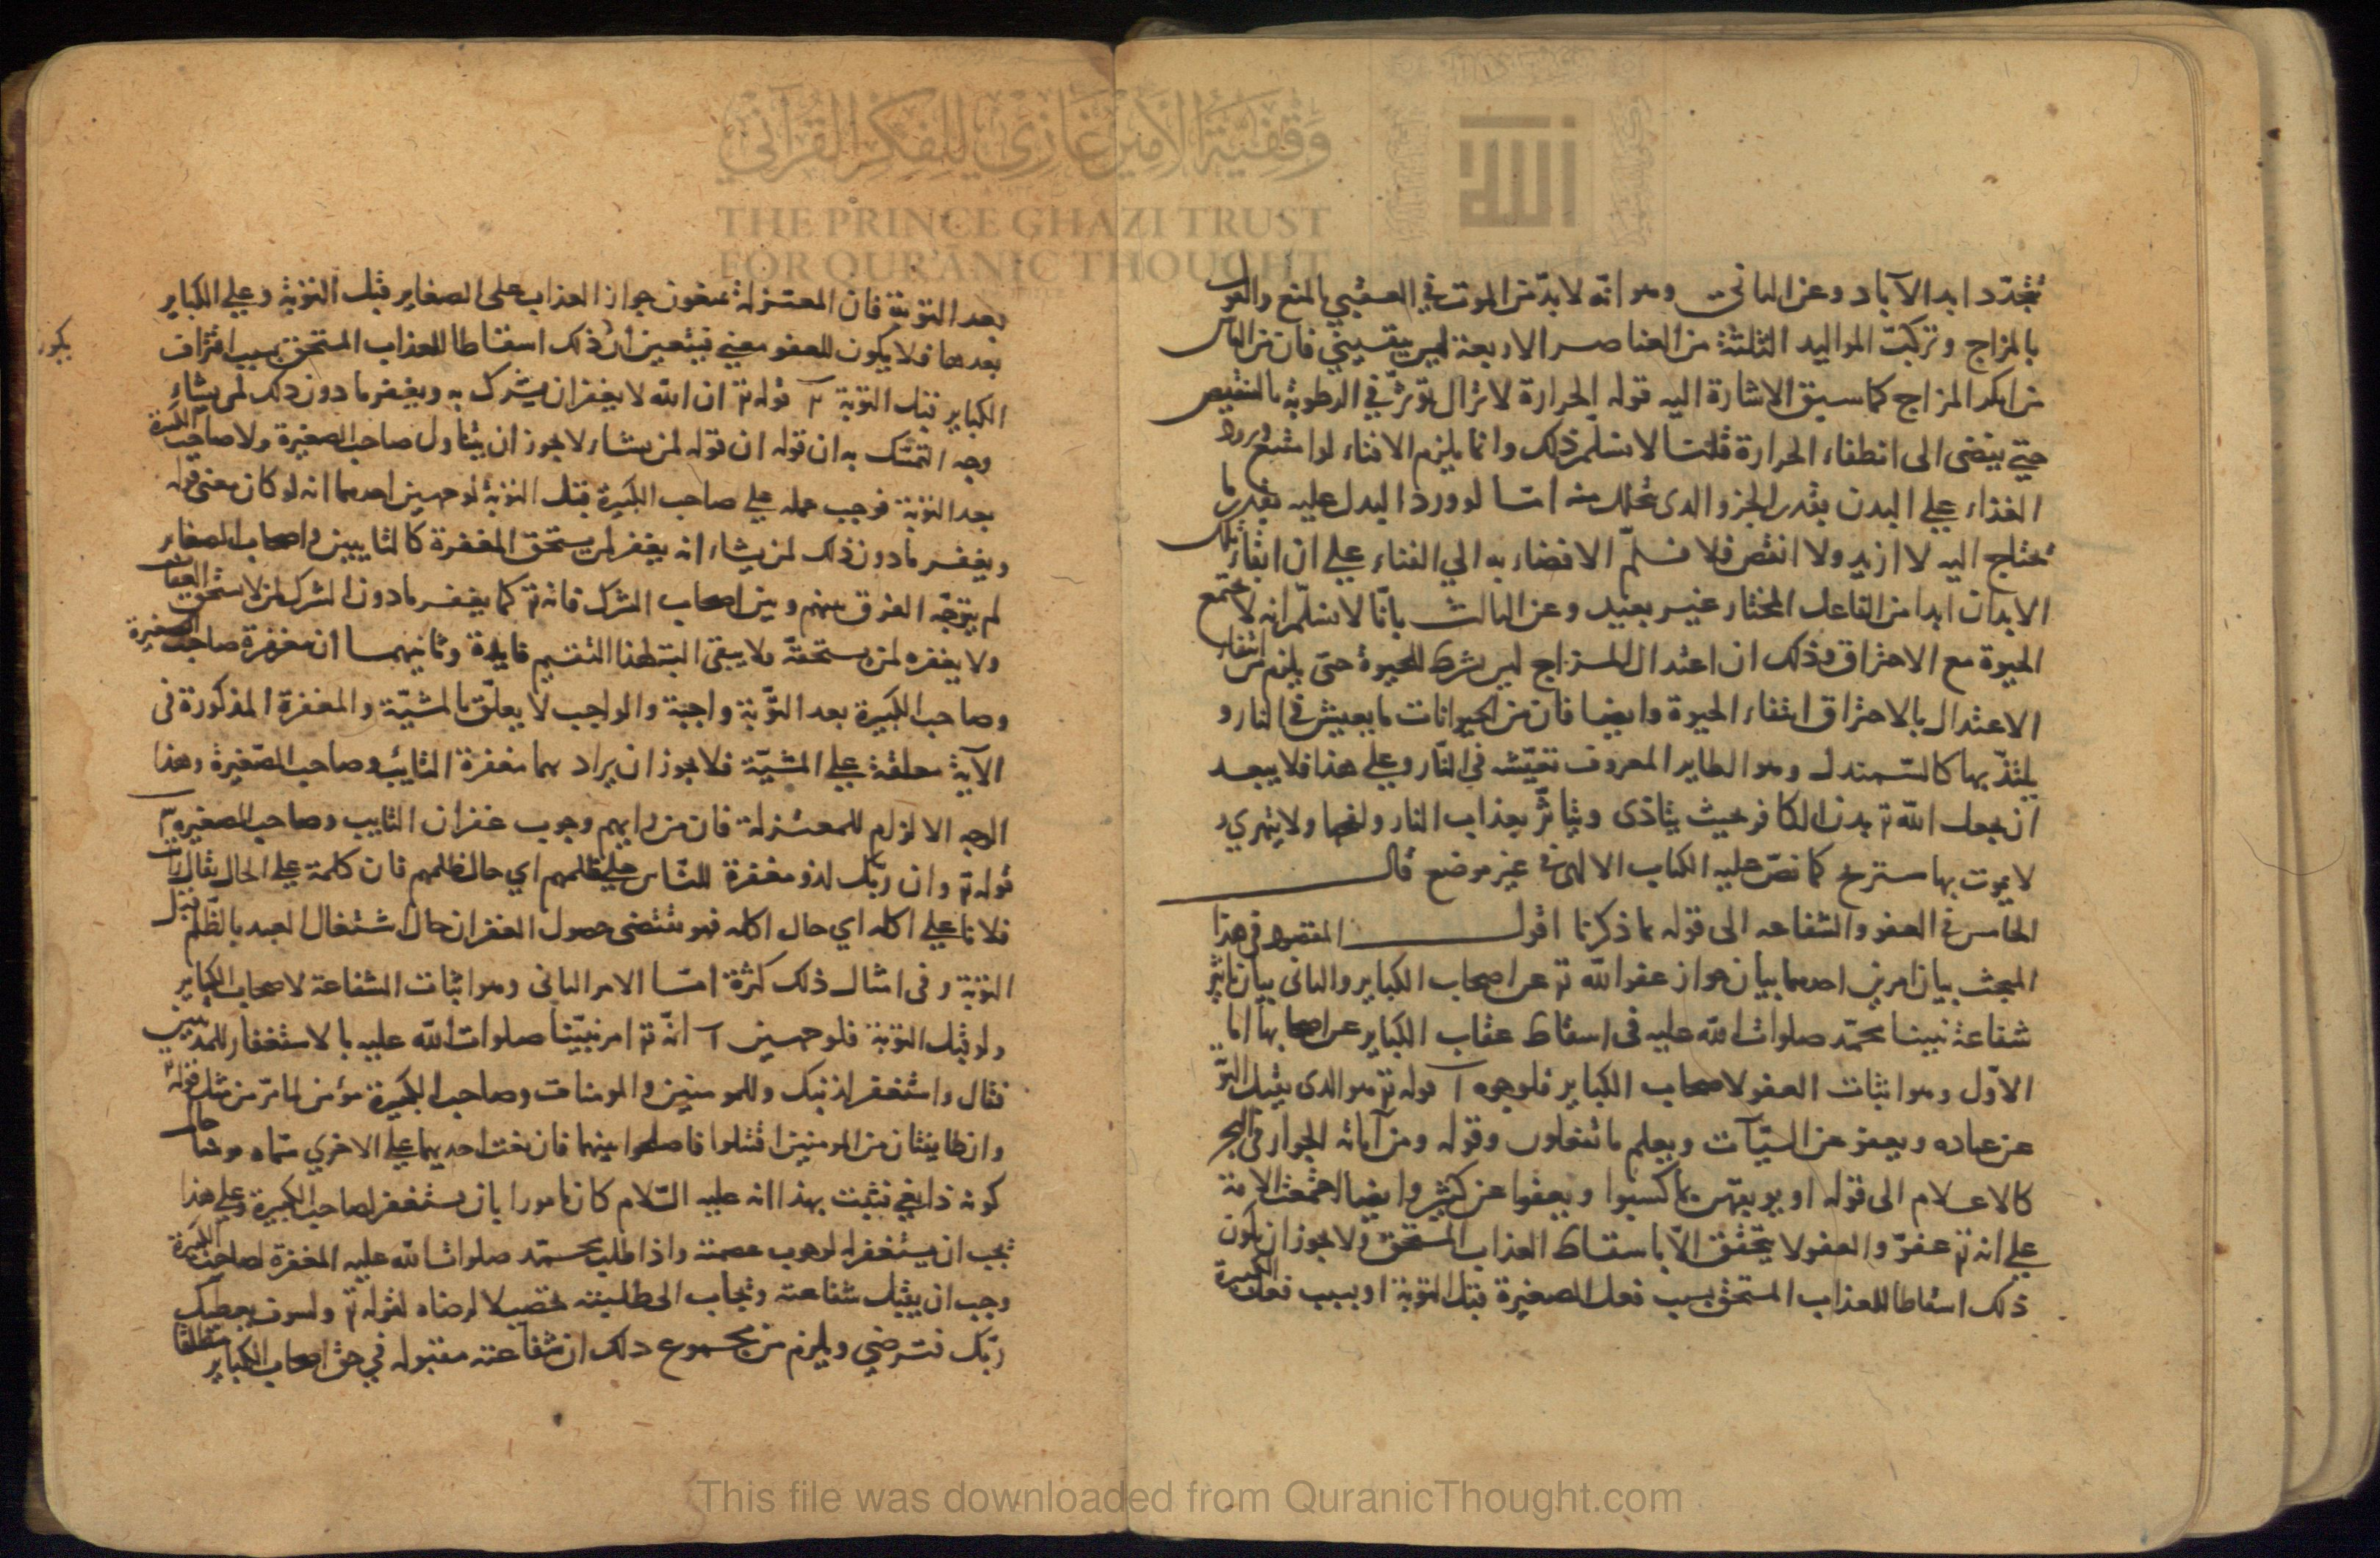 وقفية الأمير غازي للفكر القرآني
THE PRINCE GHAZI TRUST
FOR QUR'ANIC THOUGHT
الله
تتجدد ابد الآباد وعن الثانى وهو انّه لا بدّ من الموت في العقبي بالمنع والقول
بالمزاج وتركبّ المواليد الثلثة من العناصر الاربعة ليس بيقيني فان من الناس
من انكر المزاج كما سبق الاشارة اليه قوله الحرارة لا تزال تؤثرّ في الرطوبة بالتنقيص
حتي يفضى الى انطفاء الحرارة قلنا لا نسلّم ذلك وانما يلزم الافناء لو امتنع ورود
الغذاء علي البدن بقدر الجزو الذى تحلل منه امّا لو ورد البدل عليه بقدر ما
تحتاج اليه لا ازيد ولا انقص فلا نسلّم الافضاء به الي الفناء علي ان ابقاء تلك
الابدان ابدا من الفاعل المختار غير بعيد وعن الثالث بانّا لا نسلّم انه لا تجتمع
الحيوة مع الاحتراق وذلك ان اعتدال المزاج ليس بشرط للحيوة حتى يلزم من انتفاء
الاعتدال بالاحتراق انتفاء الحيوة وايضا فان من الحيوانات ما يعيش في النار و
يلتذّ بها كالسّمندل وهو الطاير المعروف تعيّشه في النّار وعلي هذا فلا يبعد
ان يجعل الله تع بدن الكافر بحيث يتاذى ويتاثّر بعذاب النار ولفحها ولا يتهري و
لا يموت بها مستريح كما نصّ عليه الكتاب الالهى فى غير موضع قال
الخامس في العفو والشفاعه الى قوله بما ذكرنا اقول المقصود في هذا
المبحث بيان امرين احدهما بيان جواز عفو الله تع عن اصحاب الكباير والثانى بيان تاثير
شفاعة نبينا محمّد صلوات الله عليه فى اسقاط عقاب الكباير عن اصحابها اما
الاوّل وهو اثبات العفو لاصحاب الكباير فلوجوه آ قوله تع هو الذى يقبل التوبة
عن عباده ويعفو عن السيّآت ويعلم ما تفعلون وقوله ومن آياته الجوار في البحر
كالاعلام الى قوله او يوبقهن بما كسبوا ويعفوا عن كثير وايضا اجتمعت الامة
علي انه تع عفوّ والعفو لا يتحقق الاّ باسقاط العذاب المستحق ولا يجوز ان يكون
ذلك اسقاطا للعذاب المستحق بسبب فعل الصغيرة قبل التوبة او بسبب فعل الكبيرة
بعد التوبة فان المعتزلة يمنعون جواز العذاب على الصغاير قبل التوبة وعلي الكباير
بعدها فلا يكون للعفو معني فيتعين ان ذلك اسقاطا للعذاب المستحق بسبب اقتراف
يكون
الكباير قبل التوبة ٢ قوله تع ان الله لا يغفر ان يشرك به ويغفر ما دون ذلك لمن يشاء
وجه التمسّك به ان قوله ان قوله لمن يشاء لا يجوز ان يتناول صاحب الصغيرة ولا صاحب الكبيرة
بعد التوبة فوجب حمله علي صاحب الكبيرة قبل التوبة لوجهين احدهما انه لو كان معنى قوله
ويغفر ما دون ذلك لمن يشاء انه يغفر لمن يستحق المغفرة كالتايبين و اصحاب الصغاير
لم يتوجّه الفرق بينهم وبين اصحاب الشرك فانه تع كما يغفر ما دون الشرك لمن لا يستحق العقاب
ولا يغفره لمن يستحقّه ولا يبقى البتة لهذا التقسيم فايدة وثانيهما ان مغفرة صاحب الصغيرة
وصاحب الكبيرة بعد التّوبة واجبة والواجب لا يعلّق بالمشيّة والمغفرة المذكورة فى
الآية معلقة علي المشيّة فلا يجوز ان يراد بها مغفرة التايب وصاحب الصّغيرة وهذا
الوجه الالزام للمعتزلة فان من رايهم وجوب غفران التايب وصاحب الصغيرة ٣
قوله تع وان ربّك لذو مغفرة للنّاس علي ظلمهم اي حال ظلمهم فان كلمة علي الحال يقال رايت
فلانا علي اكله اي حال اكله فهو يقتضى حصول الغفران حال اشتغال العبد بالظّلم قبل
التوبة وفى امثال ذلك كثرة امّا الامر الثانى وهو اثبات الشفاعة لاصحاب الكباير
ولو قبل التوبة فلوجهين آ انّه تع امر نبيّنا صلوات الله عليه بالاستغفار للمذنبين
فقال واستغفر لذنبك وللمومنين والمومنات وصاحب الكبيرة مؤمن لما مرّ من مثل قوله تع
وان طايفتان من المومنين اقتتلوا فاصلحوا بينهما فان بغت احديهما على الاخري سمّاه مومنا حال
كونه ذا بغي فثبت بهذا انه عليه السّلام كان مامورا بان يستغفر لصاحب الكبيرة وعلي هذا
يجب ان يستغفر له لوجوب عصمته واذا طلب محمّد صلوات الله عليه المغفرة لصاحب الكبيرة
وجب ان يقبل شفاعته وتجاب الى طلبته تحصيلا لرضاه لقوله تع ولسوف يعطيك
ربّك فترضي ويلزم من مجموع ذلك ان شفاعته مقبوله في حق اصحاب الكباير مطلقا
This file was downloaded from QuranicThought.com